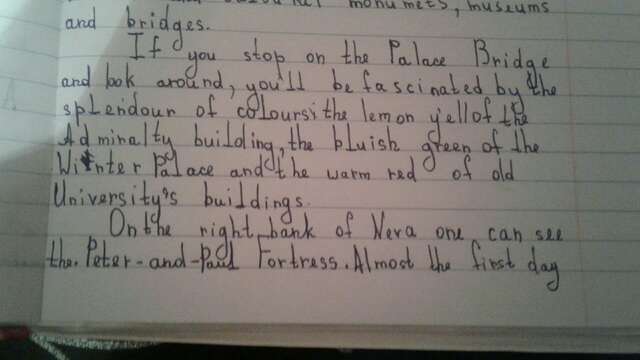 monumets, museums
and bridges.
If you stop on the Palace Bridge
and look around, you'll be fascinated by the
splendour of colours: the lemon yell of the
Admiralty building, the bluish green of the
Winter Palace and the warm red of old
University's buildings.
On the right bank of Neva one can see
the Peter-and-Paul Fortress. Almost the first day